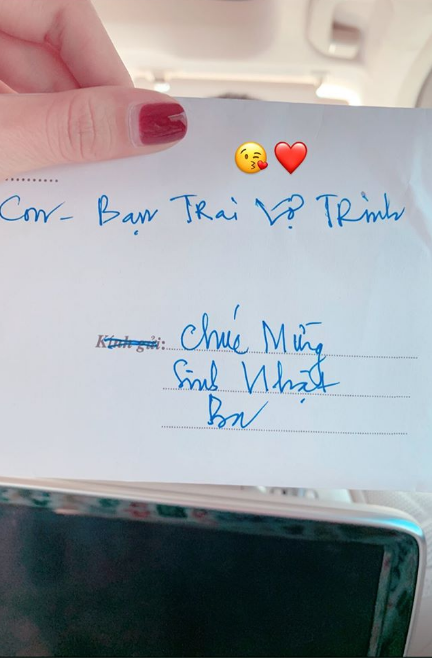 Con - Bạn TRai Vợ TRinh
Kính gửi: Chúc Mừng
Sinh Nhật
Ba